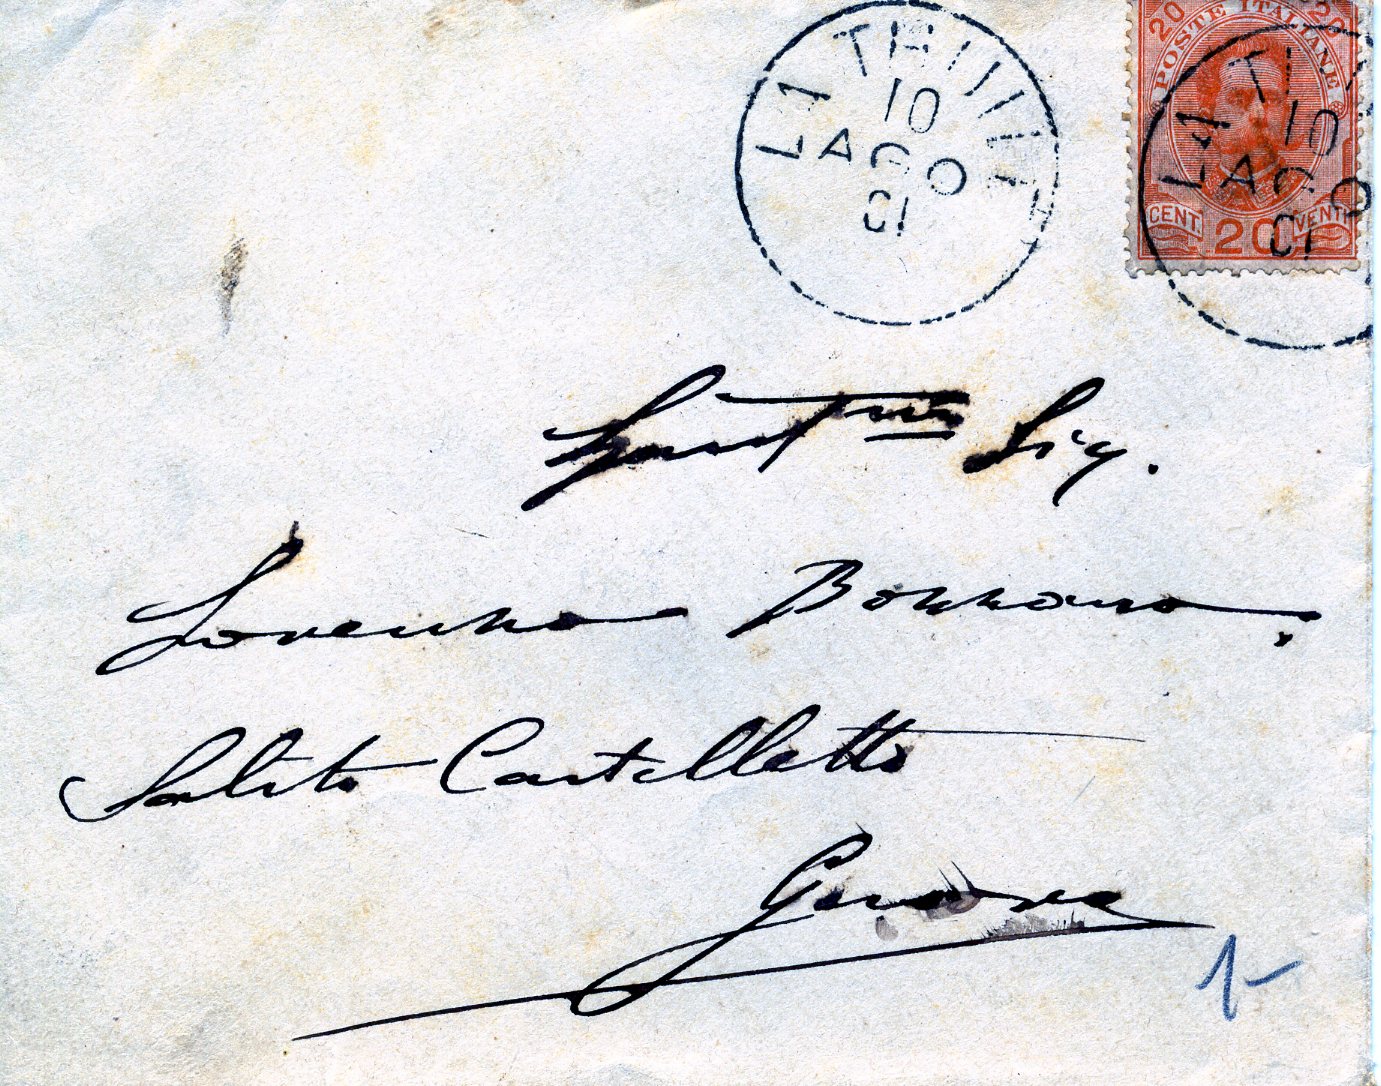 LA THUILE
10
AGO
01
20 POSTE ITALIANE 20
CENT. 20 VENTI
LA T
10
AGO
01
Sig.
Lorenzo Bozzano,
Salita Castelletto
Genova